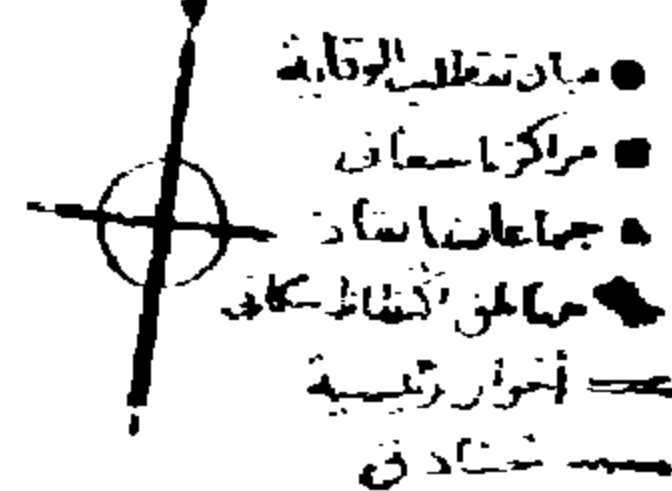 مبان تتطلب الوقاية
مراكز اسعاف
جماعات انقاذ
مناطق اكتظاظ سكاني
أغوار رئيسية
خنادق